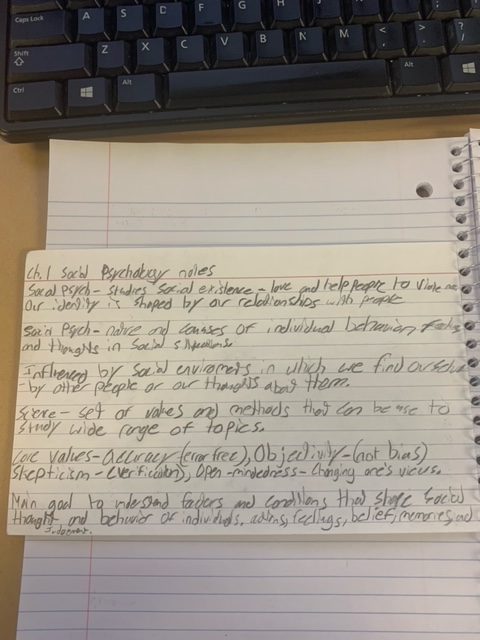 Caps Lock A S D F G H J K L : ; " '
Shift Z X C V B N M < , > . ? /
Ctrl Alt Alt
Ch.1 Social Psychology notes
Social Psych- studies social existence - love and help people to
Our identity is shaped by our relationships with people
Social Psych- naive and causes of individual behavior,
and thoughts in social situations.
Influenced by social enviroments in which we find ourselves
- by other people or our thoughts about them.
Science- set of values and methods that can be use to
study wide range of topics.
Core values- accuracy (error free), Objectivity- (not bias)
Skepticism- (verification), Open-mindedness- Changing one's views.
Main goal to understand factors and conditions that shape social
thought and behavior of individuals, actions, feelings, belief, memories, and
Judgement.